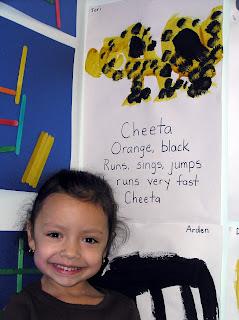 Tori
Cheeta
Orange, black
Runs, sings, jumps
runs very fast
Cheeta
Arden